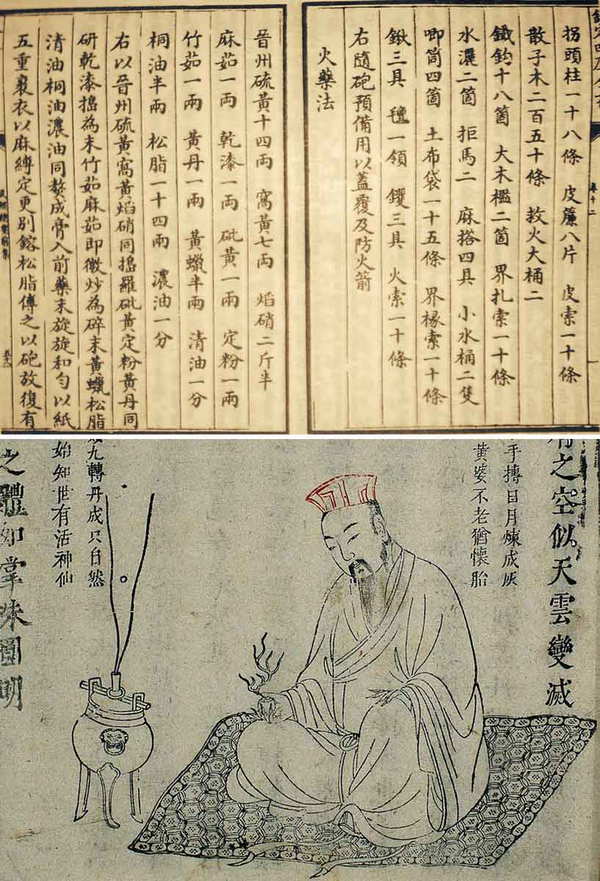 欽定四庫全書
卷十二
拐頭柱一十八條 皮簾八片 皮索一十條
散子木二百五十條 救火大桶二
鐵鈎十八箇 大木檻二箇 界扎索一十條
水濃二箇 拒馬二 麻搭四具 小水桶二隻
唧筒四箇 土布袋一十五條 界椽索一十條
鍬三具 氊一領 钁三具 火索一十條
右隨砲預備用以蓋覆及防火箭
火藥法
晉州硫黃十四兩 窩黃七兩 焰硝二斤半
麻茹一兩 乾漆一兩 砒黃一兩 定粉一兩
竹茹一兩 黃丹一兩 黃蠟半兩 清油一分
桐油半兩 松脂一十四兩 濃油一分
右以晉州硫黃窩黃焰硝同搗羅砒黃定粉黃丹同
研乾漆搗為末竹茹麻茹即微炒為碎末黃蠟松脂
清油桐油濃油同熬成膏入前藥末旋旋和勻以紙
五重裹衣以麻縛定更別鎔松脂傅之以砲放復有
之空似天雲變滅
手摶日月煉成灰
黃婆不老猶懷胎
九轉丹成只自然
始知世有活神仙
之體如掌珠圓明